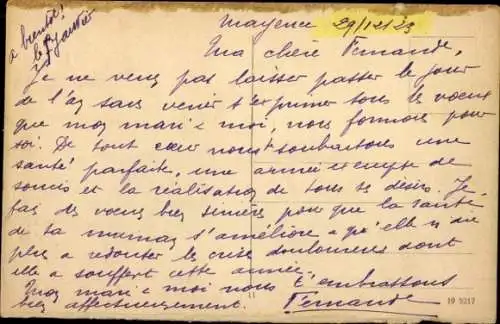 à bientôt!
le 3 Janvier
Mayence 29/12/23
Ma chère Fernande,
Je ne veux pas laisser passer le jour
de l'an sans venir t'exprimer tous les voeux
que mon mari & moi, nous formons pour
toi. De tout coeur nous te souhaitons une
santé parfaite, une année exempte de
soucis et la réalisation de tous tes désirs. Je
fais des voeux bien sincères pour que la santé
de ta maman s'améliore & qu'elle n'aie
plus à redouter les crises douloureuses dont
elle a souffert cette année.
Mon mari & moi nous t'embrassons
bien affectueusement. Fernande
11
19 3217